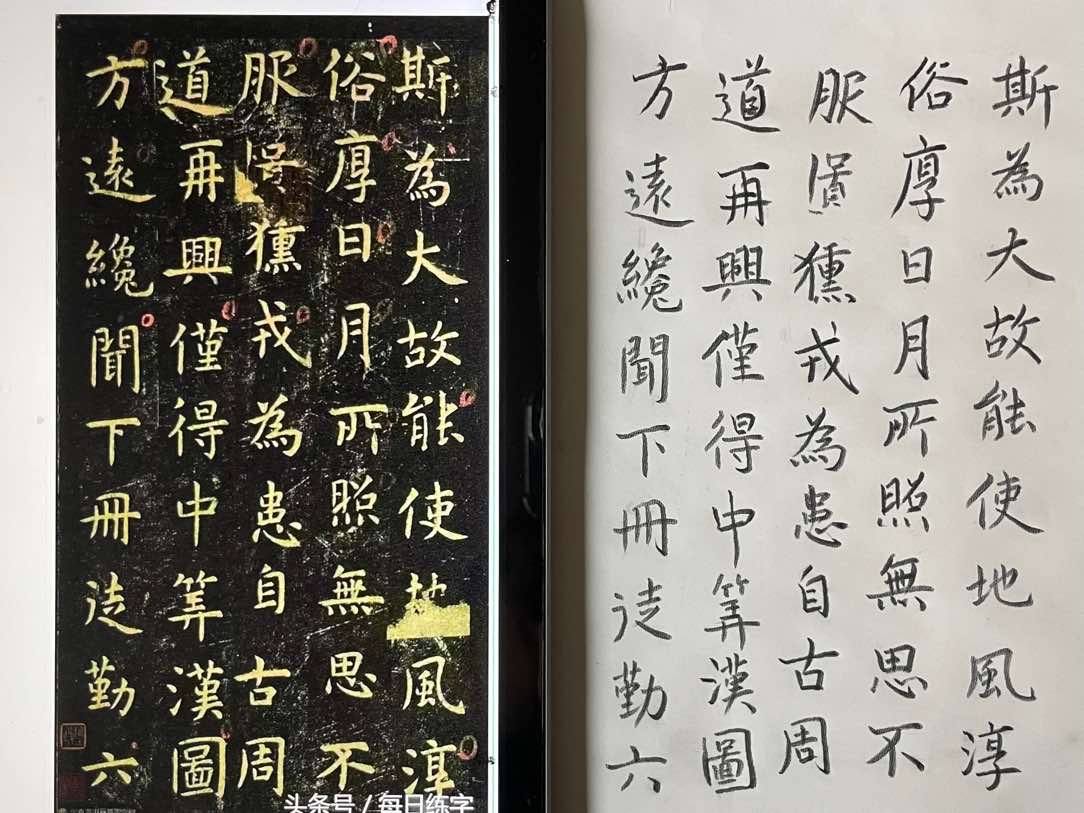 斯為大故能使風淳
俗厚日月所照無思不
服獯戎為患自古周
道再興僅得中筭漢圖
方遠纔聞下冊徒勤六
头条号 / 每日练字
斯為大故能使地風淳
俗厚日月所照無思不
服獯戎為患自古周
道再興僅得中筭漢圖
方遠纔聞下冊徒勤六